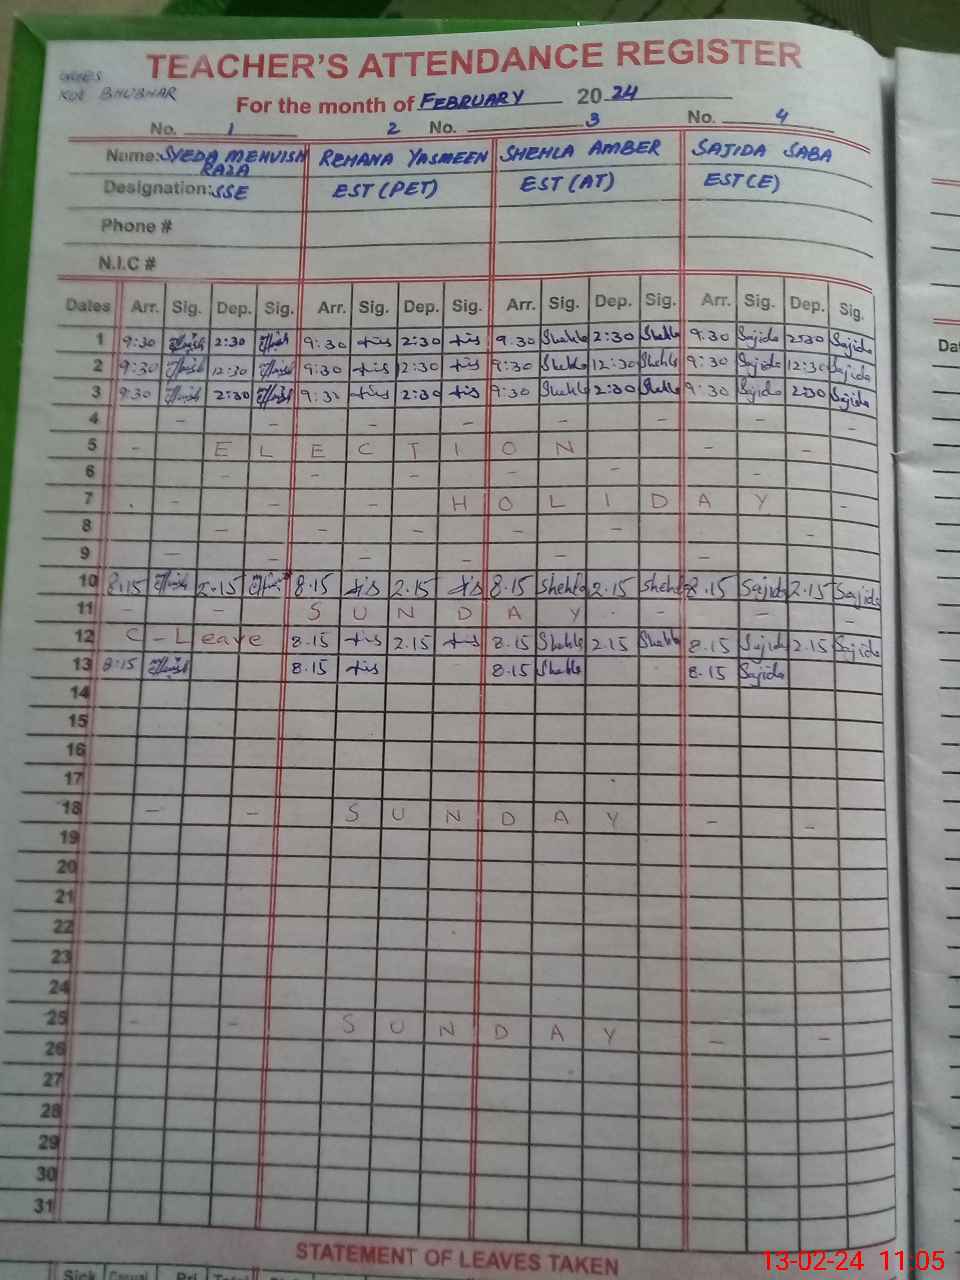 TEACHER'S ATTENDANCE REGISTER
KOT BHUBHAR
For the month of FEBRUARY 20 24
No. 1 2 No. 3 No. 4
Name: SYEDA MEHVISH RAZA REHANA YASMEEN SHEHLA AMBER SAJIDA SABA
Designation: SSE EST (PET) EST (AT) EST (E)
Phone #
N.I.C #
Dates Arr. Sig. Dep. Sig. Arr. Sig. Dep. Sig. Arr. Sig. Dep. Sig. Arr. Sig. Dep. Sig.
1 9:30 2:30 9:30 2:30 9:30 Shehla 2:30 Shehla 9:30 Sajida 2:30 Sajida
2 9:30 12:30 9:30 12:30 9:30 Shehla 12:30 Shehla 9:30 Sajida 12:30 Sajida
3 9:30 2:30 9:30 2:30 9:30 Shehla 2:30 Shehla 9:30 Sajida 2:30 Sajida
4 - - - - - - - -
5 - E L E C T I O N - -
6 - - - - - - -
7 - - - H O L I D A Y -
8 - - - - - -
9 - - - - - -
10 8.15 2.15 8.15 2.15 8.15 Shehla 2.15 Shehla 8.15 Sajida 2.15 Sajida
11 - - S U N D A Y - - - -
12 C - Leave 8.15 2.15 8.15 Shehla 2.15 Shehla 8.15 Sajida 2.15 Sajida
13 8:15 8.15 8.15 Shehla 8.15 Sajida
14
15
16
17
18 - - S U N D A Y - -
19
20
21
22
23
24
25 - - S U N D A Y - -
26
27
28
29
30
31
STATEMENT OF LEAVES TAKEN
Sick Casual Pri Total
13-02-24 11:05